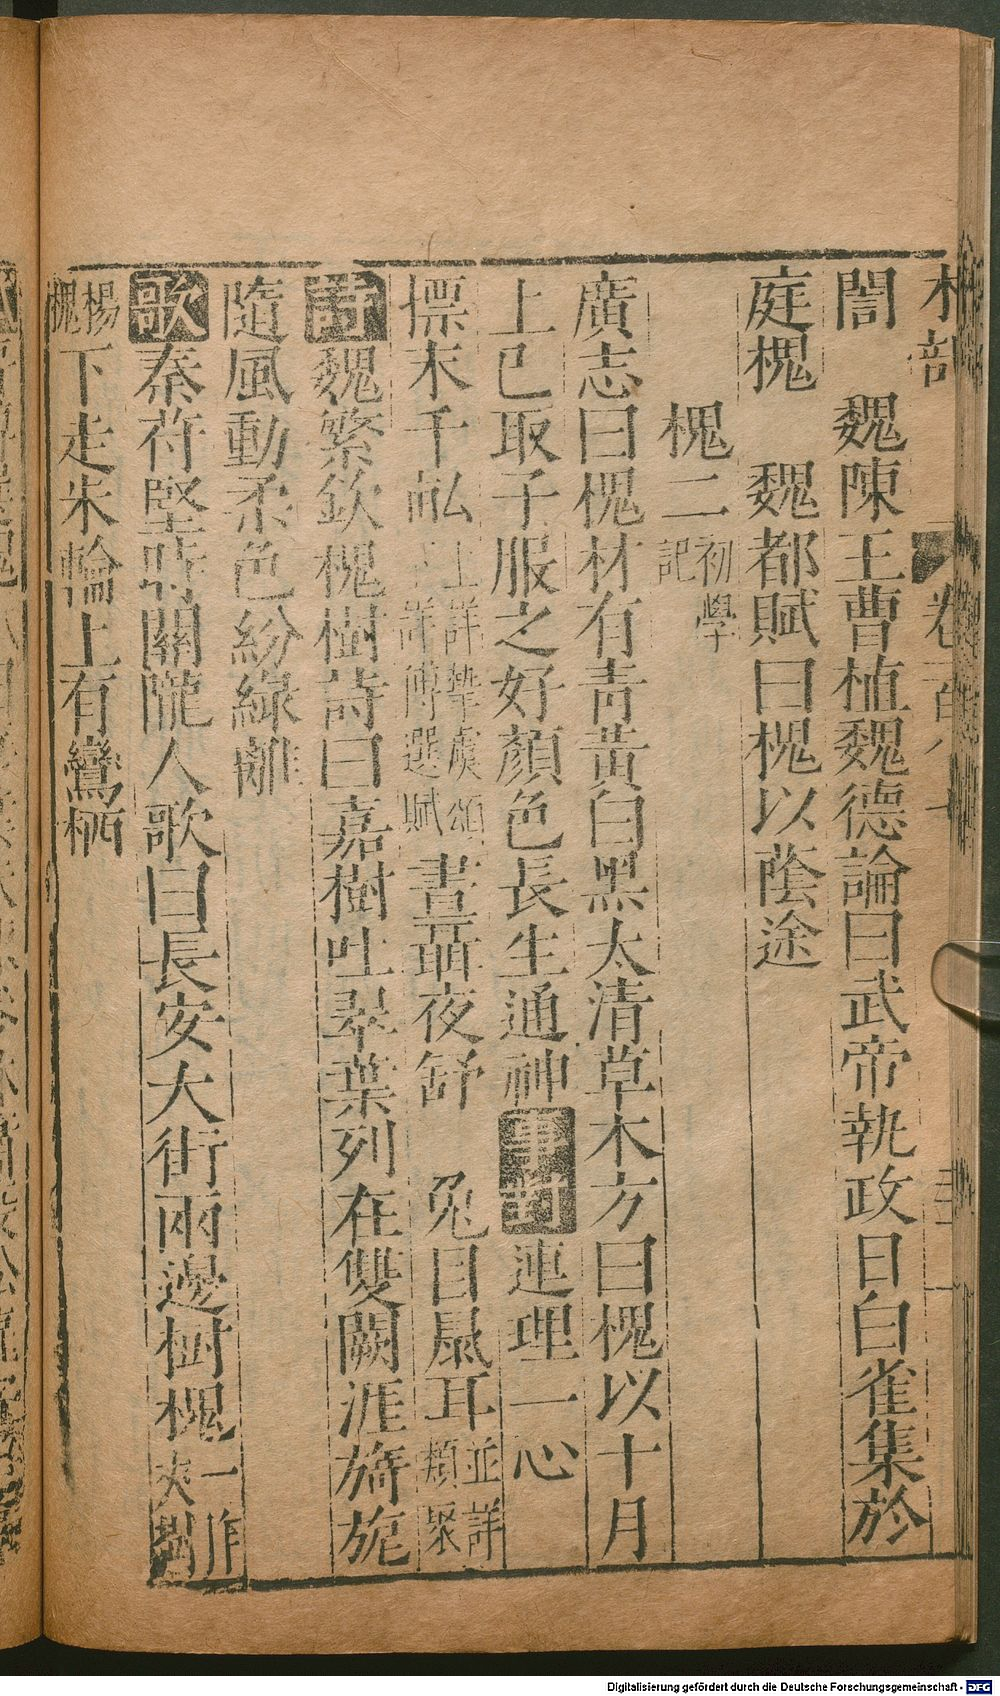 木部
誾　魏陳王曹植魏德論曰武帝執政日白雀集於
庭槐　魏都賦曰槐以蔭途
槐二 初學記
廣志曰槐材有青黃白黑太清草木方曰槐以十月
上巳取子服之好顏色長生通神 事對 連理一心
摽末千 上詳摯虞頌 詳傅選賦 晝聶夜舒　兔目鼠耳 並詳類聚
詩 魏繁欽槐樹詩曰嘉樹吐翠葉列在雙闕涯旖旎
隨風動柔色紛綠離
歌 秦苻堅時關隴人歌曰長安大街兩邊樹槐 一作夾樹
楊槐 下走朱輪上有鸞栖
Digitalisierung gefördert durch die Deutsche Forschungsgemeinschaft - DFG